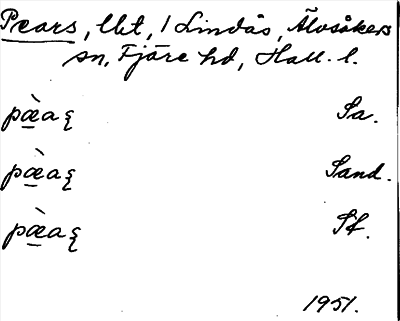 Pears, lht, 1 Lindås, Älvsåkers
sn, Fjäre hd, Hall. l.
pæ̀aꞩ Sa.
pæ̀aꞩ Sand.
pæ̀aꞩ Sf.
1951.